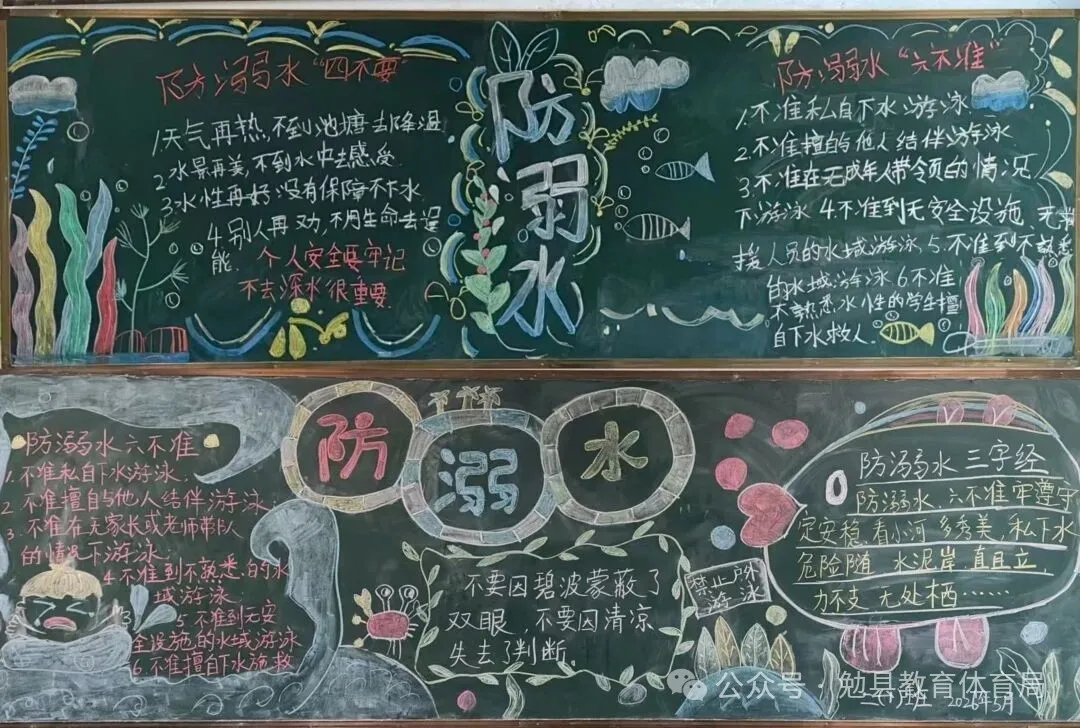 防溺水“四不要”
1天气再热,不到池塘去降温
2水景再美,不到水中去感受
3水性再好没有保障不下水
4.别人再劝,不用生命去逞
能.
个人安全要牢记
不去深水很重要
防溺水
防溺水“六不准”
1.不准私自下水游泳
2.不准擅自与他人结伴游泳
3不准在无成年人带领的情况
下游泳 4.不准到无安全设施 无
援人员的水域游泳.5.不准到不熟悉
的水域游泳.6不准
不熟悉水性的学生擅
自下水救人.
防溺水六不准
1.不准私自下水游泳.
2不准擅自与他人结伴游泳
3.不准在无家长或老师带队
的情况下游泳.
4不准到不熟悉的水
域游泳
5不准到无安
全设施的水域游泳
6.不准擅自下水施救
防溺水
不要因碧波蒙蔽了
双眼,不要因清凉
失去了判断。
禁止户外
游泳
防溺水三字经
防溺水,六不准牢遵守
定安稳 看小河多秀美,私下水
危险随 水泥岸,直且立
力不支 无处栖……
公众号·勉县教育体育局
2026年5月